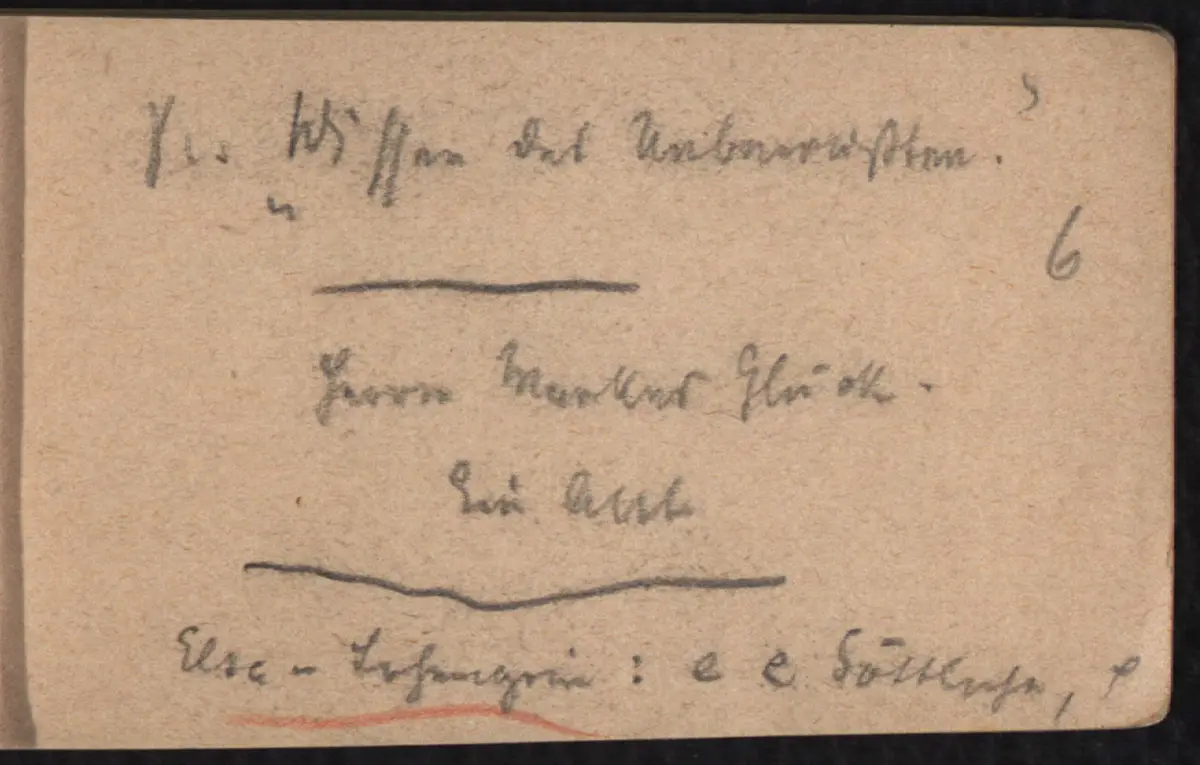 „Wissen des Unbewußten."
6
Herrn Markus Glück.
Ein Akt
Elsa - Lohengrin: e e Göttliche, e